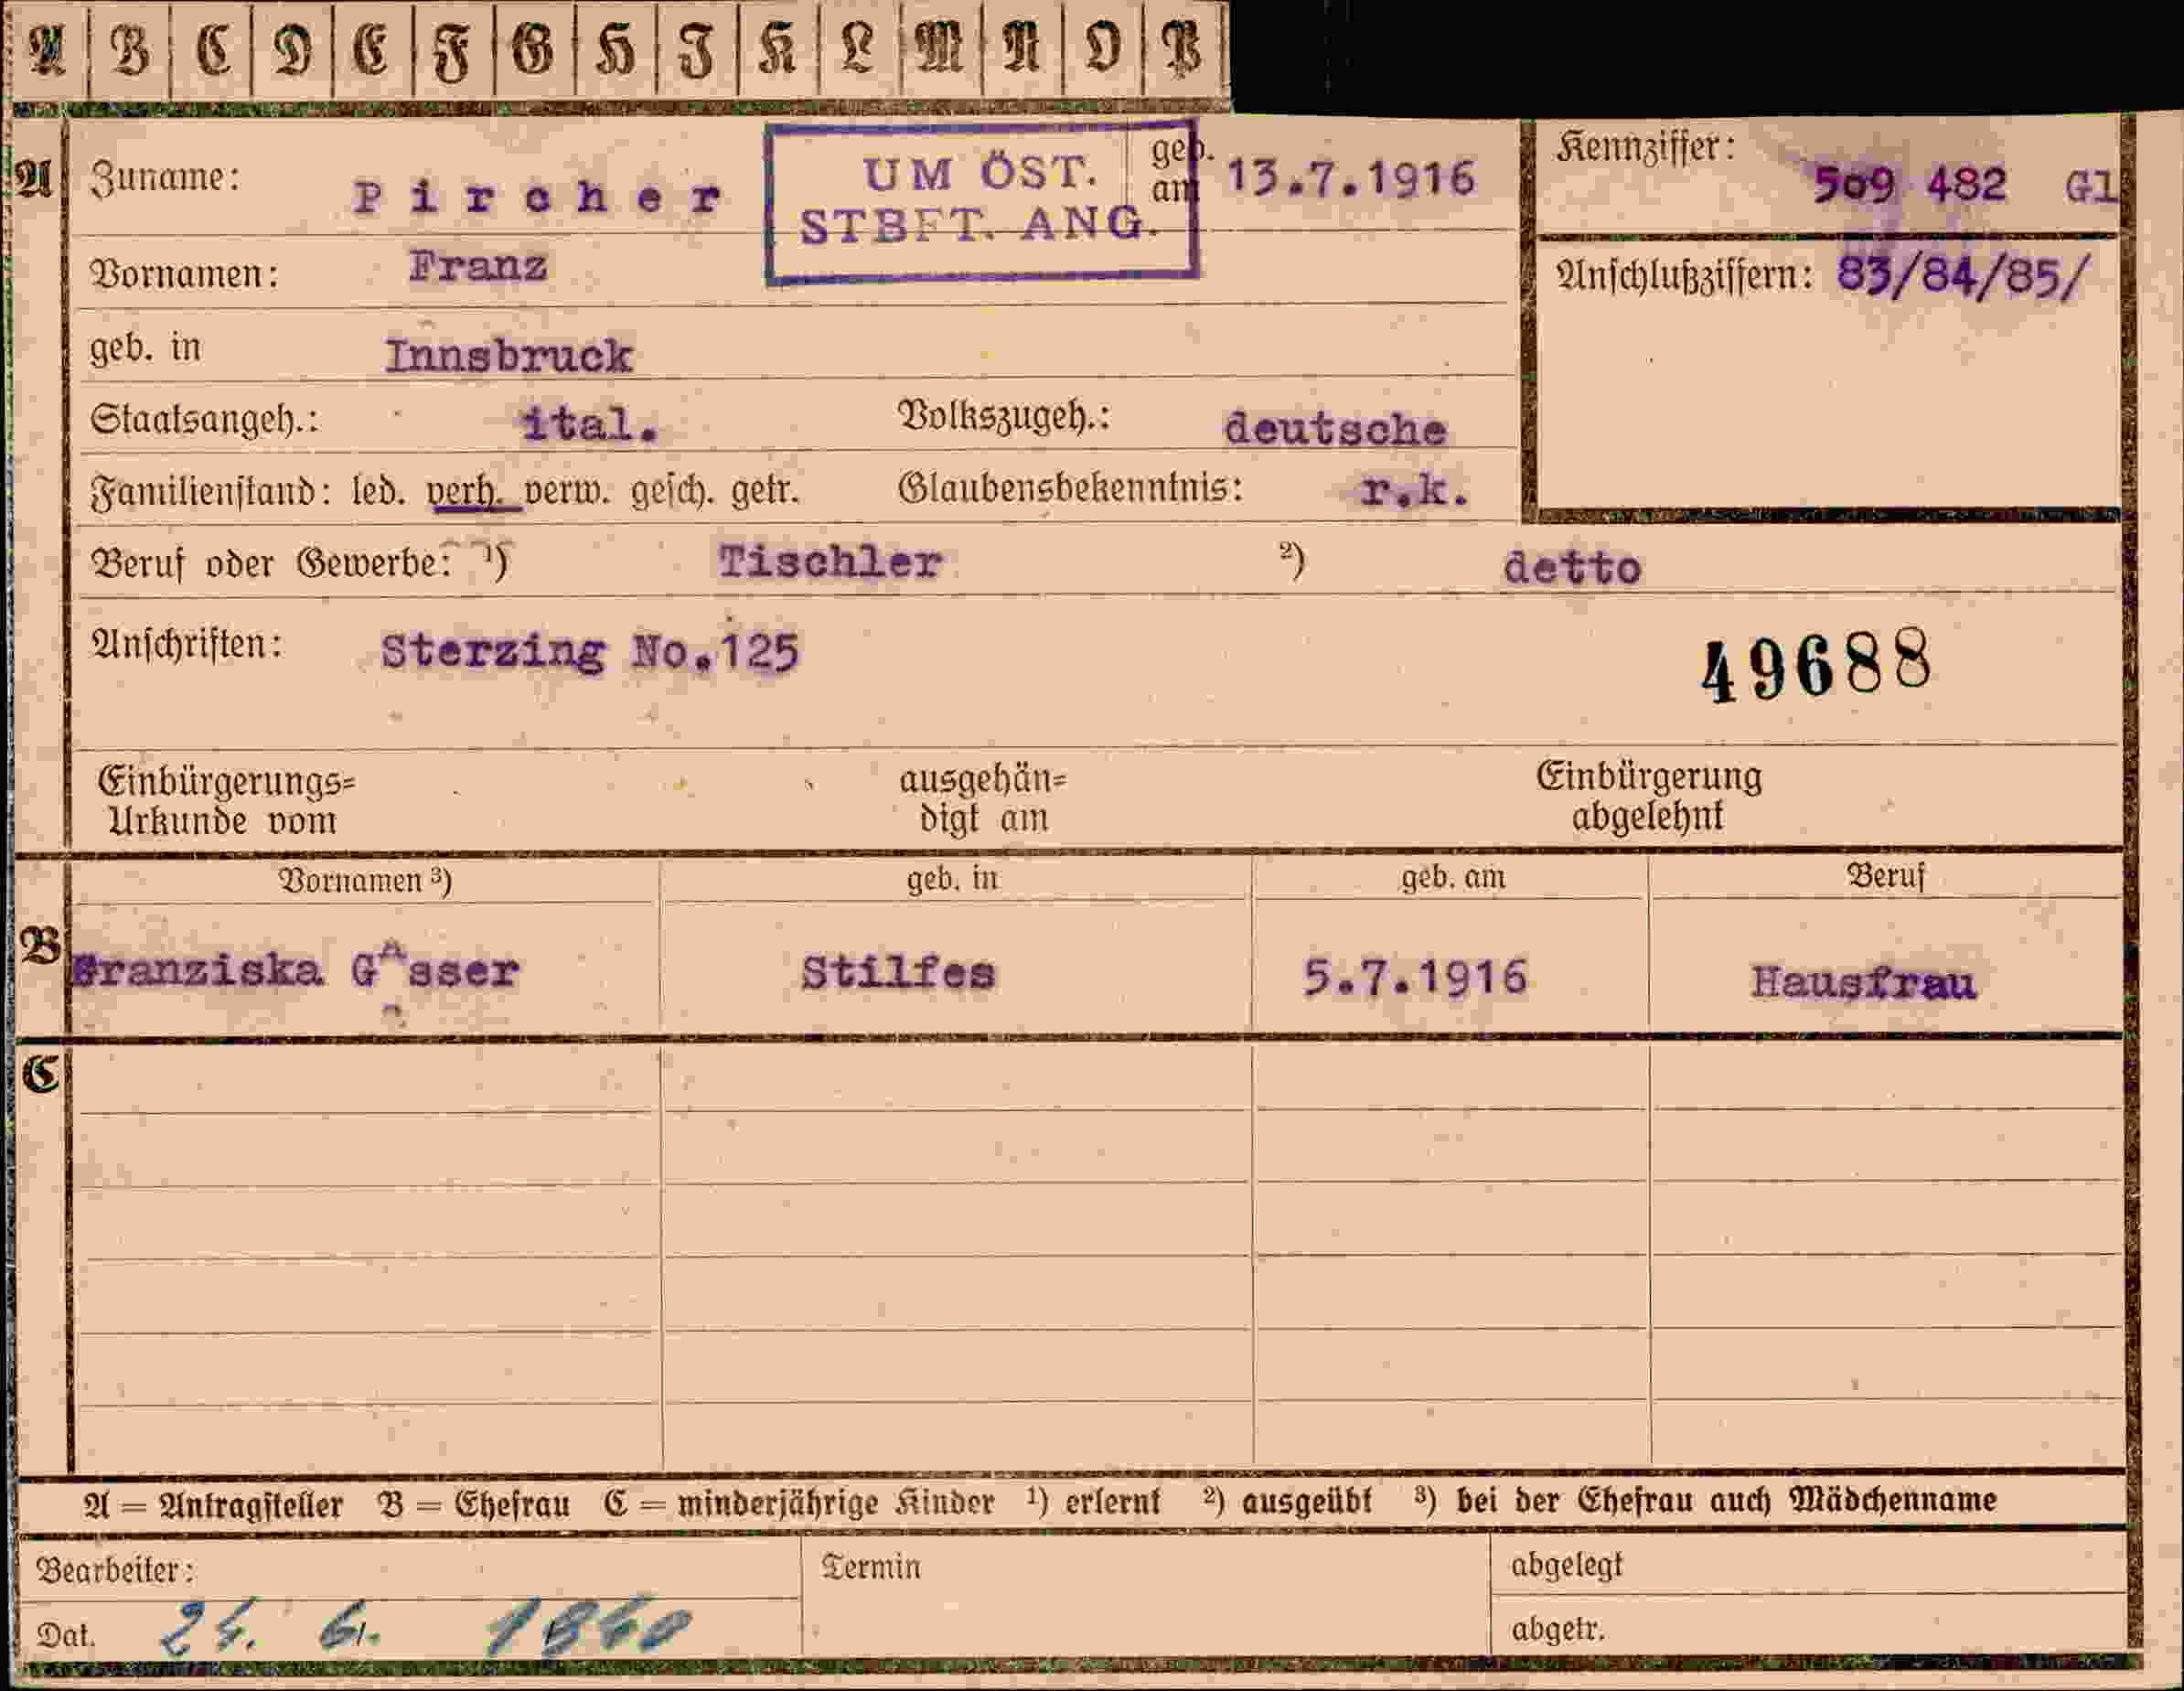 A B C D E F G H J K L M N O P
A Zuname: Pircher geb. am 13.7.1916
UM ÖST.
STBFT. ANG.
Kennziffer: 509 482 Gl
Vornamen: Franz
Anschlußziffern: 83/84/85/
geb. in Innsbruck
Staatsangeh.: ital. Volkszugeh.: deutsche
Familienstand: led. verh. verw. gesch. getr. Glaubensbekenntnis: r.k.
Beruf oder Gewerbe: ¹) Tischler ²) detto
Anschriften: Sterzing No.125
49688
Einbürgerungs= ausgehän= Einbürgerung
Urkunde vom digt am abgelehnt
Vornamen ³) geb. in geb. am Beruf
B Franziska Gasser Stilfes 5.7.1916 Hausfrau
C
A = Antragsteller B = Ehefrau C = minderjährige Kinder ¹) erlernt ²) ausgeübt ³) bei der Ehefrau auch Mädchenname
Bearbeiter: Termin abgelegt
Dat. 24. 6. 1940 abgetr.